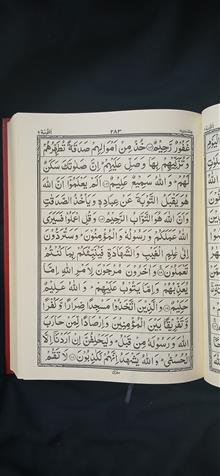 ٢٨٣
غَفُوْرٌ رَّحِيْمٌ خُذْ مِنْ اَمْوَالِهِمْ صَدَقَةً تُطَهِّرُهُمْ
وَتُزَكِّيْهِمْ بِهَا وَصَلِّ عَلَيْهِمْ ؕ اِنَّ صَلٰوتَكَ سَكَنٌ
لَّهُمْ ؕ وَاللّٰهُ سَمِيْعٌ عَلِيْمٌ اَلَمْ يَعْلَمُوْۤا اَنَّ اللّٰهَ
هُوَ يَقْبَلُ التَّوْبَةَ عَنْ عِبَادِهٖ وَيَاْخُذُ الصَّدَقٰتِ
وَاَنَّ اللّٰهَ هُوَ التَّوَّابُ الرَّحِيْمُ وَقُلِ اعْمَلُوْا فَسَيَرَى
اللّٰهُ عَمَلَكُمْ وَرَسُوْلُهٗ وَالْمُؤْمِنُوْنَ ؕ وَسَتُرَدُّوْنَ
اِلٰى عٰلِمِ الْغَيْبِ وَالشَّهَادَةِ فَيُنَبِّئُكُمْ بِمَا كُنْتُمْ
تَعْمَلُوْنَ وَاٰخَرُوْنَ مُرْجَوْنَ لِاَمْرِ اللّٰهِ اِمَّا
يُعَذِّبُهُمْ وَاِمَّا يَتُوْبُ عَلَيْهِمْ ؕ وَاللّٰهُ عَلِيْمٌ
حَكِيْمٌ وَالَّذِيْنَ اتَّخَذُوْا مَسْجِدًا ضِرَارًا وَّكُفْرًا
وَّتَفْرِيْقًۢا بَيْنَ الْمُؤْمِنِيْنَ وَاِرْصَادًا لِّمَنْ حَارَبَ
اللّٰهَ وَرَسُوْلَهٗ مِنْ قَبْلُ ؕ وَلَيَحْلِفُنَّ اِنْ اَرَدْنَاۤ اِلَّا
الْحُسْنٰى ؕ وَاللّٰهُ يَشْهَدُ اِنَّهُمْ لَكٰذِبُوْنَ لَا تَقُمْ